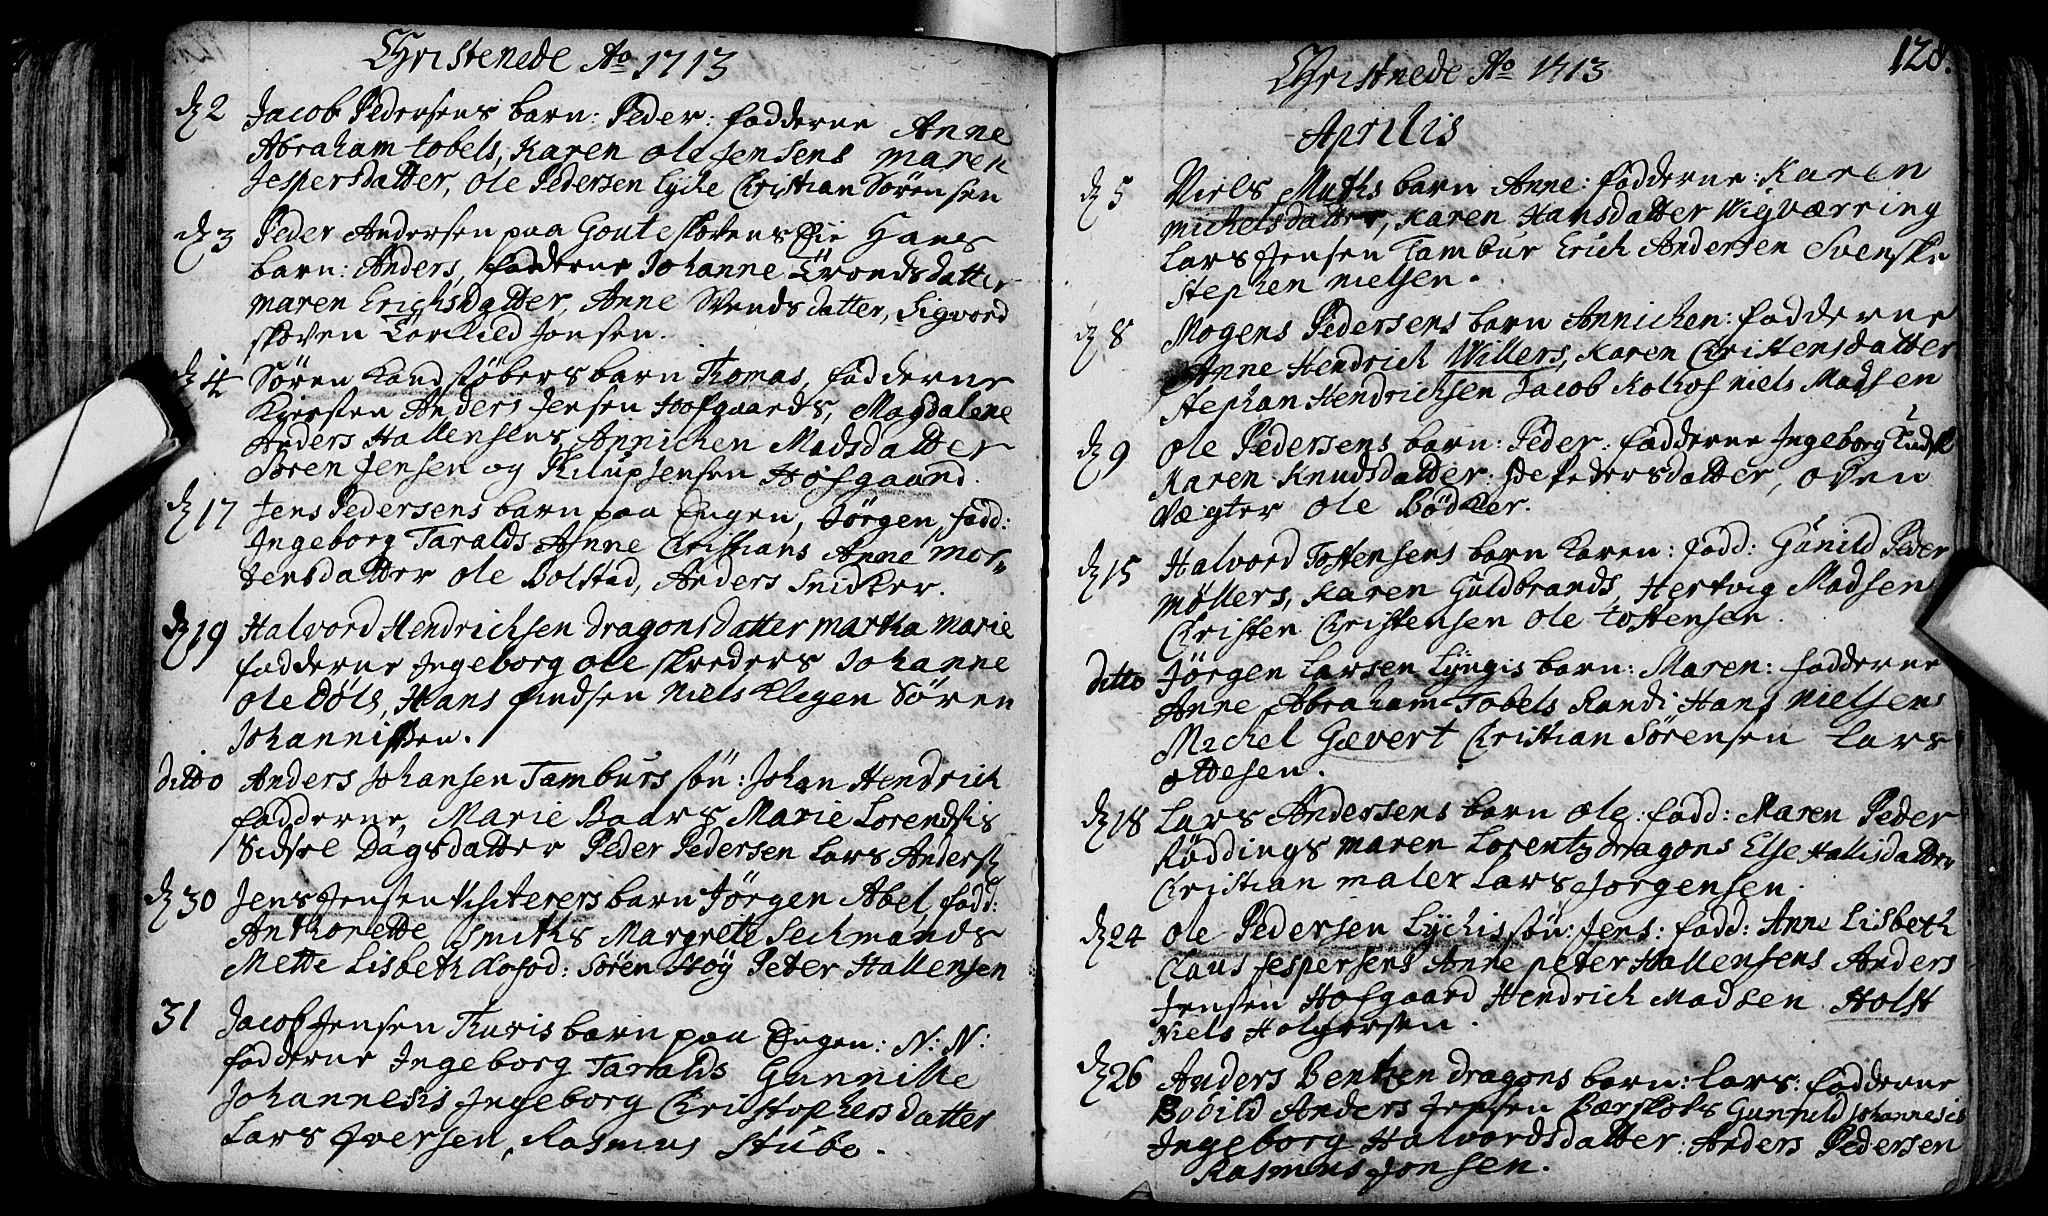 Christenede Ao 1713
d 2 Jacob Pedersens barn: Peder: fadderne Anne
Abraham tobels, Karen ole Jensens maren
Jespersdatter, ole Pedersen Lyche Christian Sørensen
d 3 Peder Andersen paa
barn: Anders, fadderne Johanne Tronds datter
maren Erichsdatter, Anne Svends datter, Sigvord
skoven Torkild Jonsen.
d 14 Søren Kandstøbers barn Thomas, fadderne
Kiersten Anders Jensen Hofgaards, Magdalene
Anders Hallensens Annichen Madsdatter
Søren Jensen og Philupsensen Hofgaard.
d 17 Jens Pedersens barn paa Engen, Jørgen, fadd:
Ingeborg Taralds Anne Christians Anne Mor-
tensdatter ole Bolstad, Anders Snicker.
d 19 Halvord Hendrichsen dragons datter martha marie
fadderne Ingeborg ole skreders Johanne
ole Døls, Hans findsen Niels Klegen Søren
Johannissen.
ditto Anders Johansen Tamburs søn: Johan Hendrich
fadderne, Marie Baars Marie Lorendsis
Sidsel Dagsdatter Peder Pedersen Lars Anders
d 30 Jens Jensen visiterers barn Jørgen Abel, fadd:
Anthonette Smiths Margrete Sechmands
Mette Lisbeth Søren Høy Peter Hallensen
31 Jacob Jensen Thuris barn paa Engen: N: N:
fadderne Ingeborg Taralds Gunnille
Johannesis Ingeborg Christophersdatter
Lars Iversen, Rasmus Stubo.
128.
Christnede Ao 1713
Aprilis
d 5 Niels Muths barn Anne: fadderne: Karen
Michelsdatter, Karen Hansdatter Wigværring
Lars Jensen Tambur Erich Andersen Svenske
Stephen nielsen.
d 8 Mogens Pedersens barn Annichen: fadderne
Anne Hendrich Willers, Karen Christensdatter
Stephan Hendrichsen Jacob Kolhof niels Madsen
d 9 ole Pedersens barn: Peder: fadderne Ingeborg
Karen Knudsdatter: Ide Pedersdatter, oven
Vægter ole Bødker.
d 15 Halvord Tostensens barn Karen: fadd: Gunild Peder
Møllers, Karen Guldbrands, Hertvig Madsen
Christen Christensen ole tostensen.
ditto Jørgen Larsen Lyngis barn: Maren: fadderne
Anne Abraham Tobels Randi Hans nielsens
Michel Gævert Christian Sørensen Lars
ottesen.
d 18 Lars Andersens barn ole: fadd: Maren Peder
Røddings maren Lorentz dragons Else Hallisdatter
Christian maler Lars Jorgensen.
d 24 ole Pedersen Lychis søn: Jens: fadd: Anne Lisbeth
Claus Jespersens Anne peter Hallensens Anders
Jensen Hofgaard Hendrich Madsen Holst
Niels Holgersen.
d 26 Anders Bentzen dragons barn: Lars: fadderne
Bodild Anders Jepsen Gunnild Johannesis
Ingeborg Halvordsdatter: Anders Pedersen
Rasmus Jonsen.